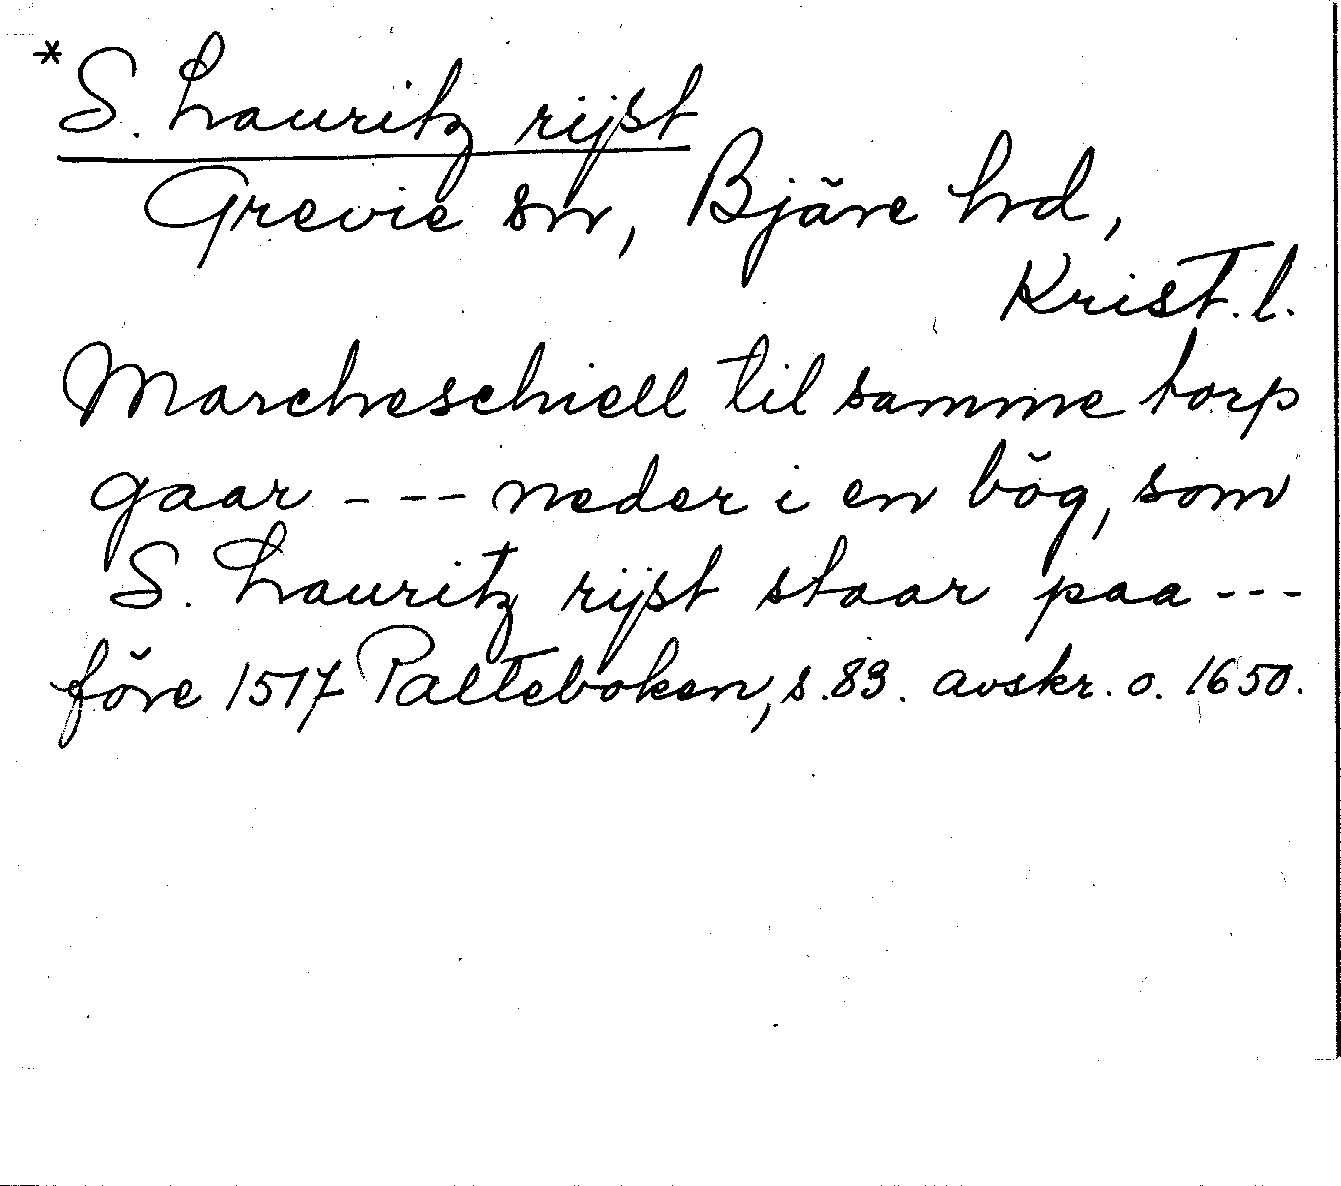 *S. Lauritz rijst
Grevie sn, Bjäre hd,
Krist. l.
Marcheschiell til samme torp
gaar - - - neder i en bög, som
S. Lauritz rijst staar paa - - -
före 1517 Palteboken, s. 83. avskr. o. 1650.